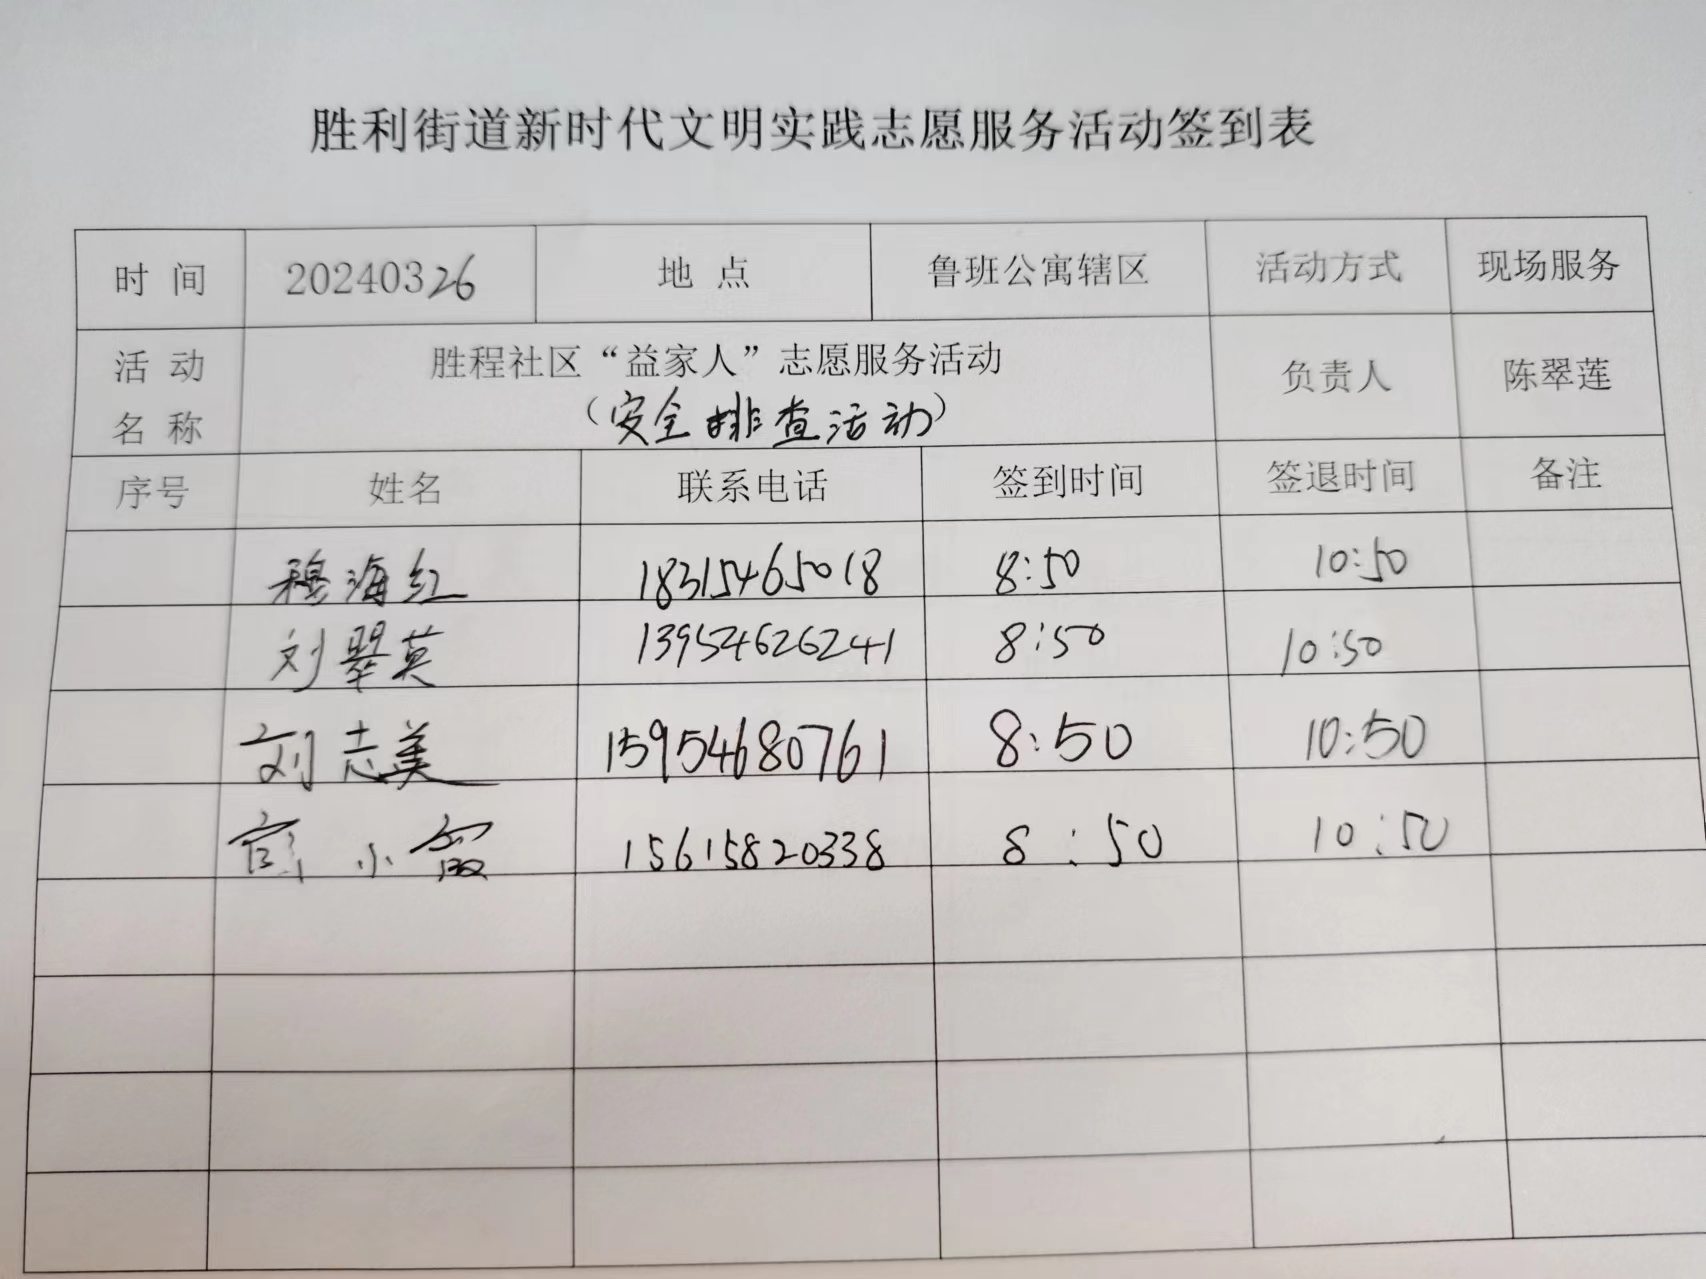 胜利街道新时代文明实践志愿服务活动签到表
时 间 20240326 地 点 鲁班公寓辖区 活动方式 现场服务
活 动 名 称 胜程社区“益家人”志愿服务活动 负责人 陈翠莲
（安全排查活动）
序号 姓名 联系电话 签到时间 签退时间 备注
穆海红 18315465018 8:50 10:50
刘翠英 13954626241 8:50 10:50
刘志美 15954680761 8:50 10:50
小 15615820338 8:50 10:50